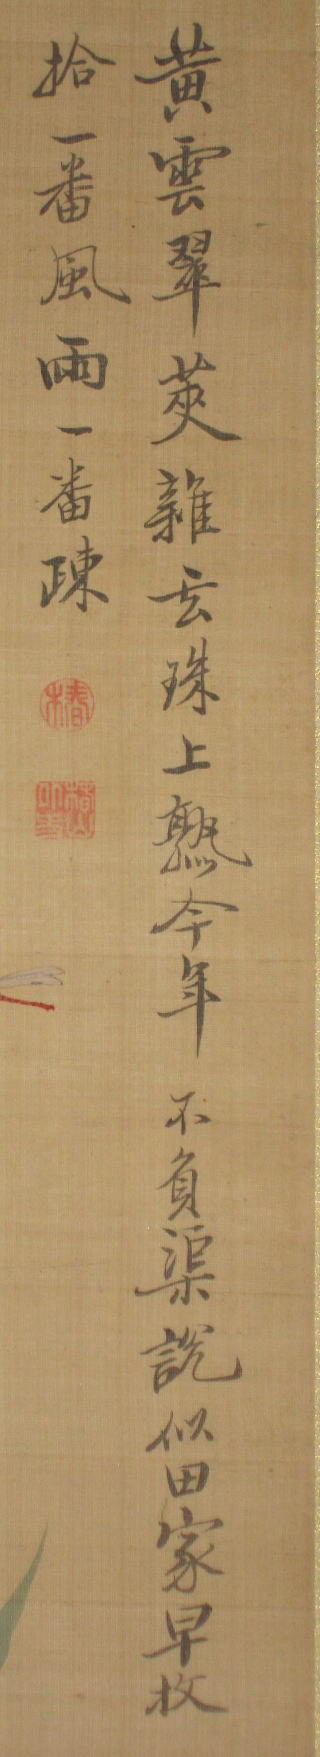 黃雲翠莢雜玄珠上熟今年不負渠說似田家早收
拾一番風雨一番疎